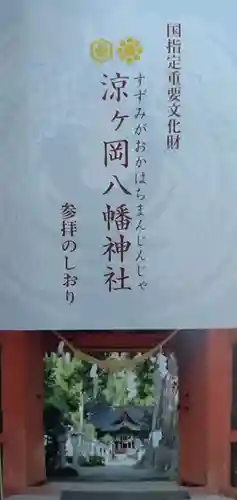 国指定重要文化財
すずみがおかはちまんじんじゃ
涼ヶ岡八幡神社
参拝のしおり